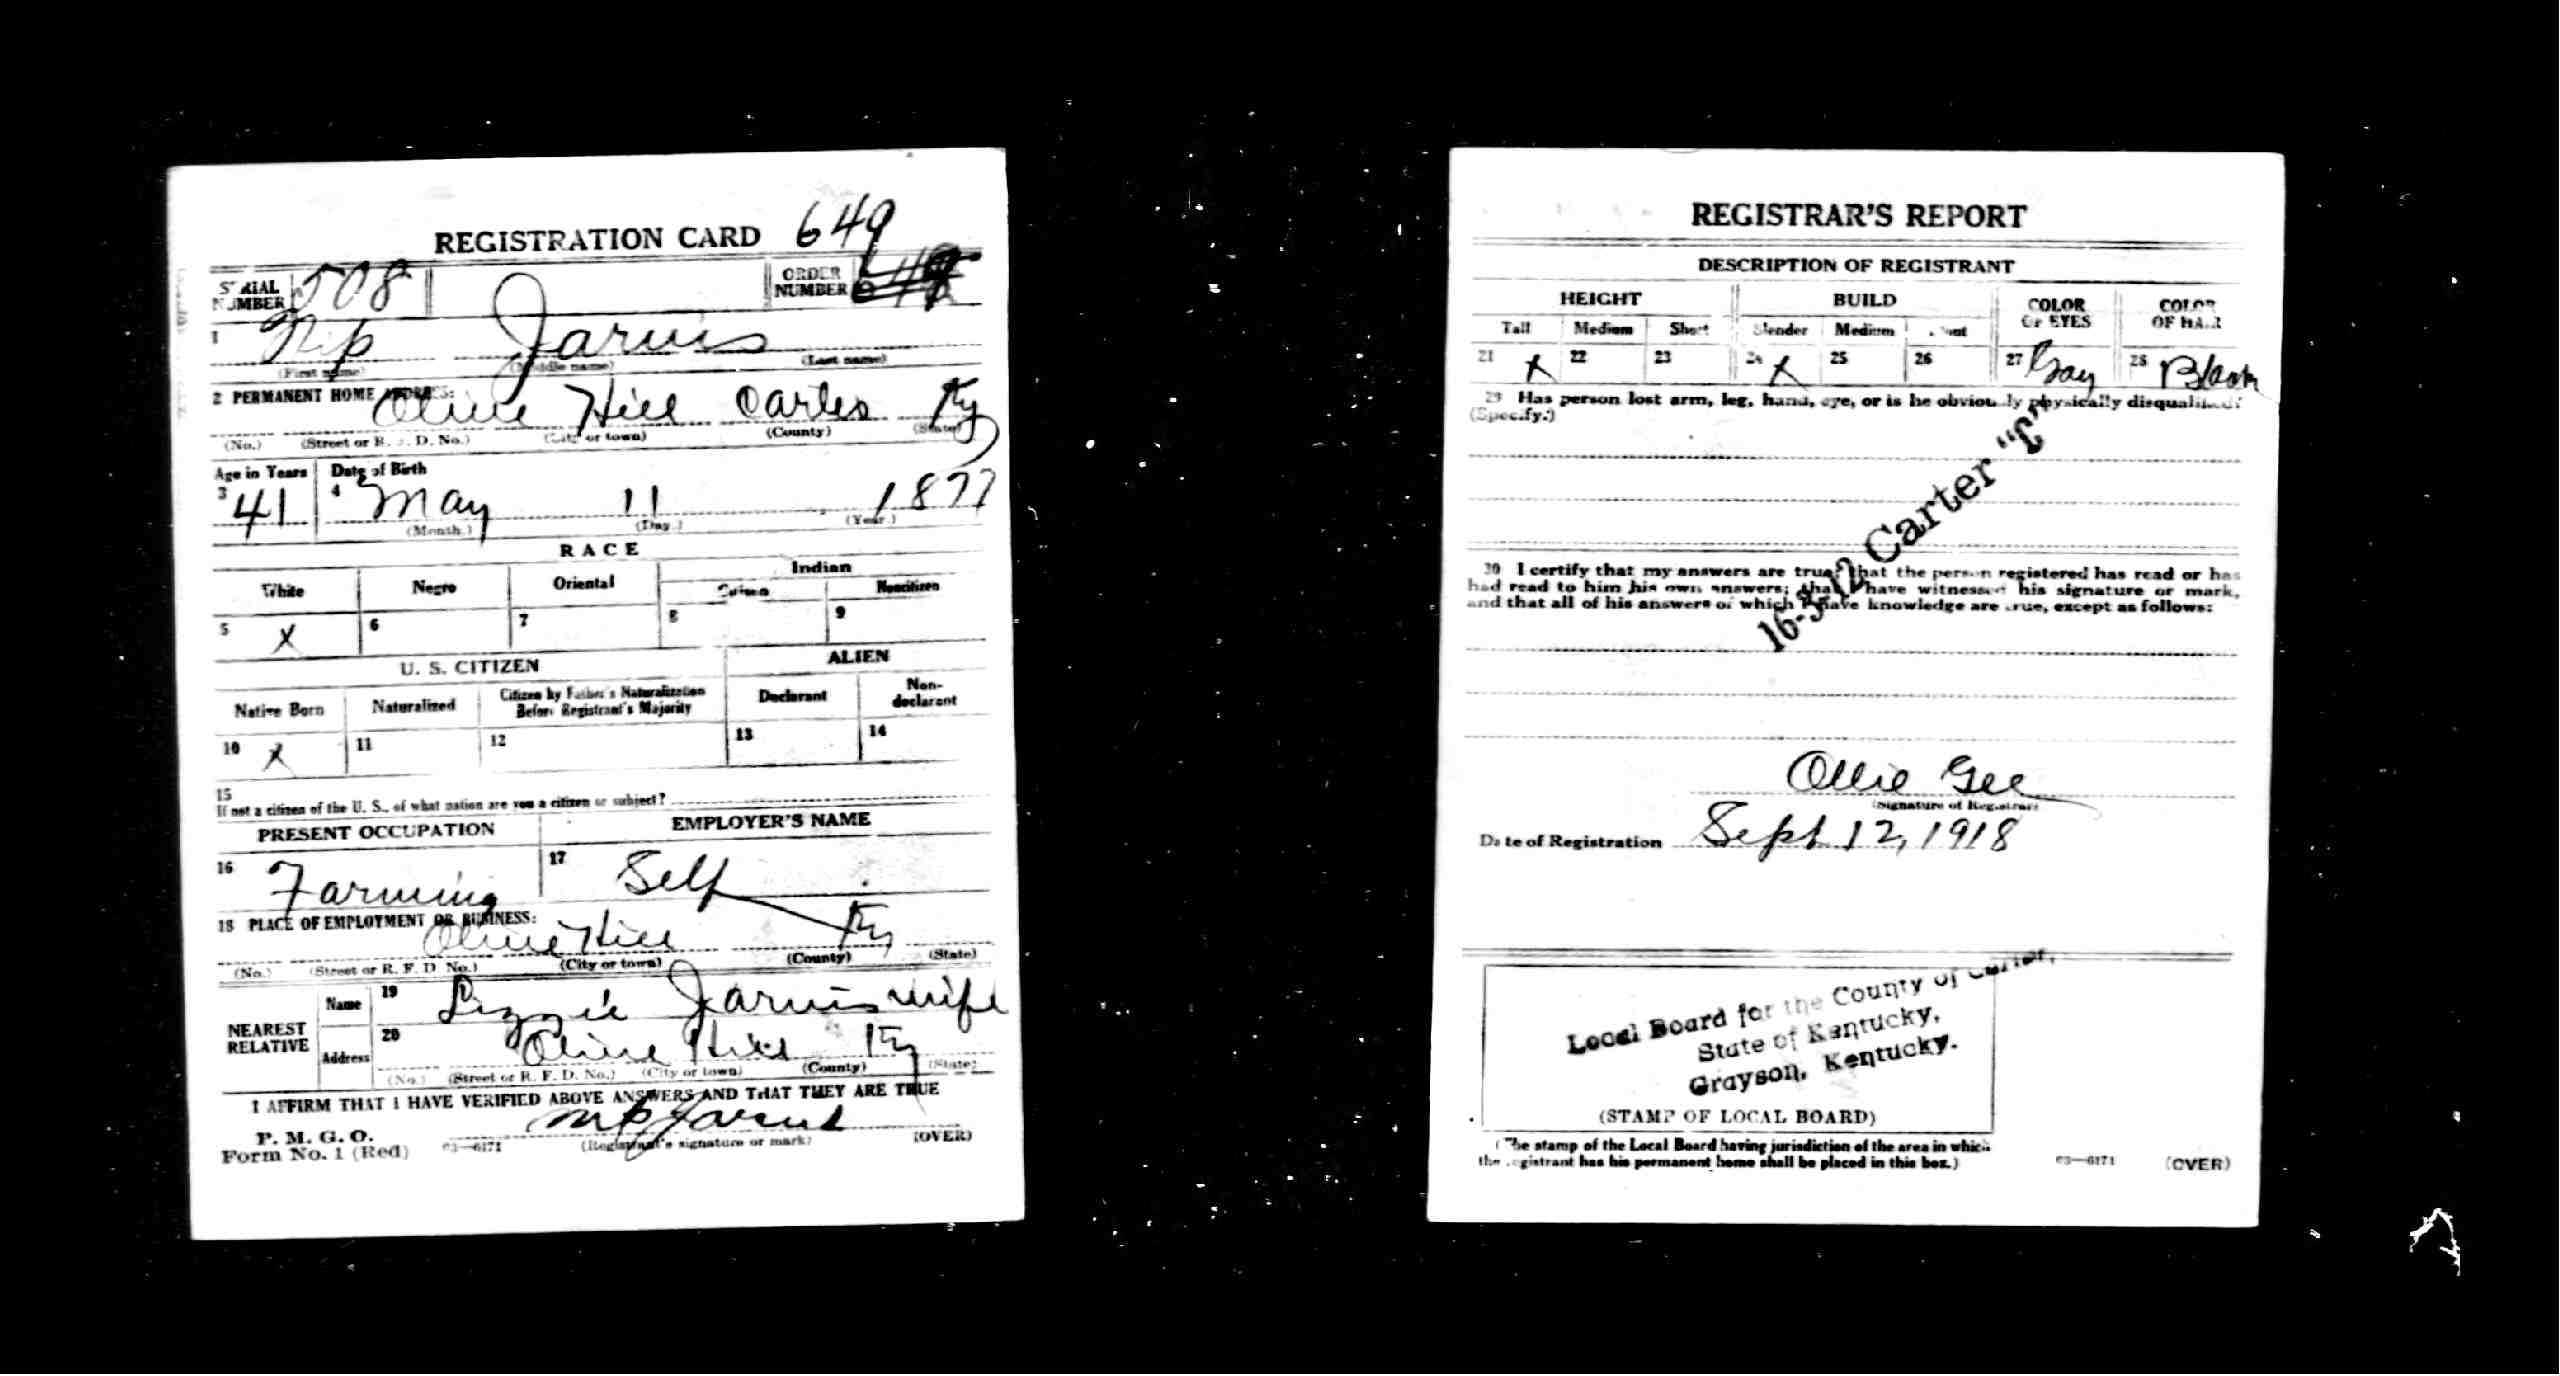 REGISTRATION CARD 649
SERIAL NUMBER 508 ORDER NUMBER
1 Nip Jarvis
(First name) (Middle name) (Last name)
2 PERMANENT HOME ADDRESS: Olive Hill Carter Ky
(No.) (Street or R. F. D. No.) (City or town) (County) (State)
Age in Years Date of Birth
3 41 4 May 11 1877
(Month.) (Day.) (Year.)
RACE
White Negro Oriental Indian
Citizen Noncitizen
5 X 6 7 8 9
U. S. CITIZEN ALIEN
Native Born Naturalized Citizen by Father's Naturalization Before Registrant's Majority Declarant Non-declarant
10 X 11 12 13 14
15
If not a citizen of the U. S., of what nation are you a citizen or subject?
PRESENT OCCUPATION EMPLOYER'S NAME
16 Farming 17 Self
18 PLACE OF EMPLOYMENT OR BUSINESS: Olive Hill Ky
(No.) (Street or R. F. D. No.) (City or town) (County) (State)
NEAREST RELATIVE Name 19 Lizzie Jarvis wife
Address 20 Olive Hill Ky
(No.) (Street or R. F. D. No.) (City or town) (County) (State)
I AFFIRM THAT I HAVE VERIFIED ABOVE ANSWERS AND THAT THEY ARE TRUE
P. M. G. O.
Form No. 1 (Red) 03—6171 Jarvis (Registrant's signature or mark) (OVER)
REGISTRAR'S REPORT
DESCRIPTION OF REGISTRANT
HEIGHT BUILD COLOR OF EYES COLOR OF HAIR
Tall Medium Short Slender Medium Stout
21 X 22 23 24 X 25 26 27 Gray 28 Black
29 Has person lost arm, leg, hand, eye, or is he obviously physically disqualified?
(Specify.)
16-3-12 Carter "C"
30 I certify that my answers are true; that the person registered has read or has
had read to him his own answers; that I have witnessed his signature or mark,
and that all of his answers of which I have knowledge are true, except as follows:
Ollie Gee
(Signature of Registrar)
Date of Registration Sept 12, 1918
Local Board for the County of Carter,
State of Kentucky,
Grayson, Kentucky.
(STAMP OF LOCAL BOARD)
(The stamp of the Local Board having jurisdiction of the area in which
the registrant has his permanent home shall be placed in this box.) 03—6171 (OVER)